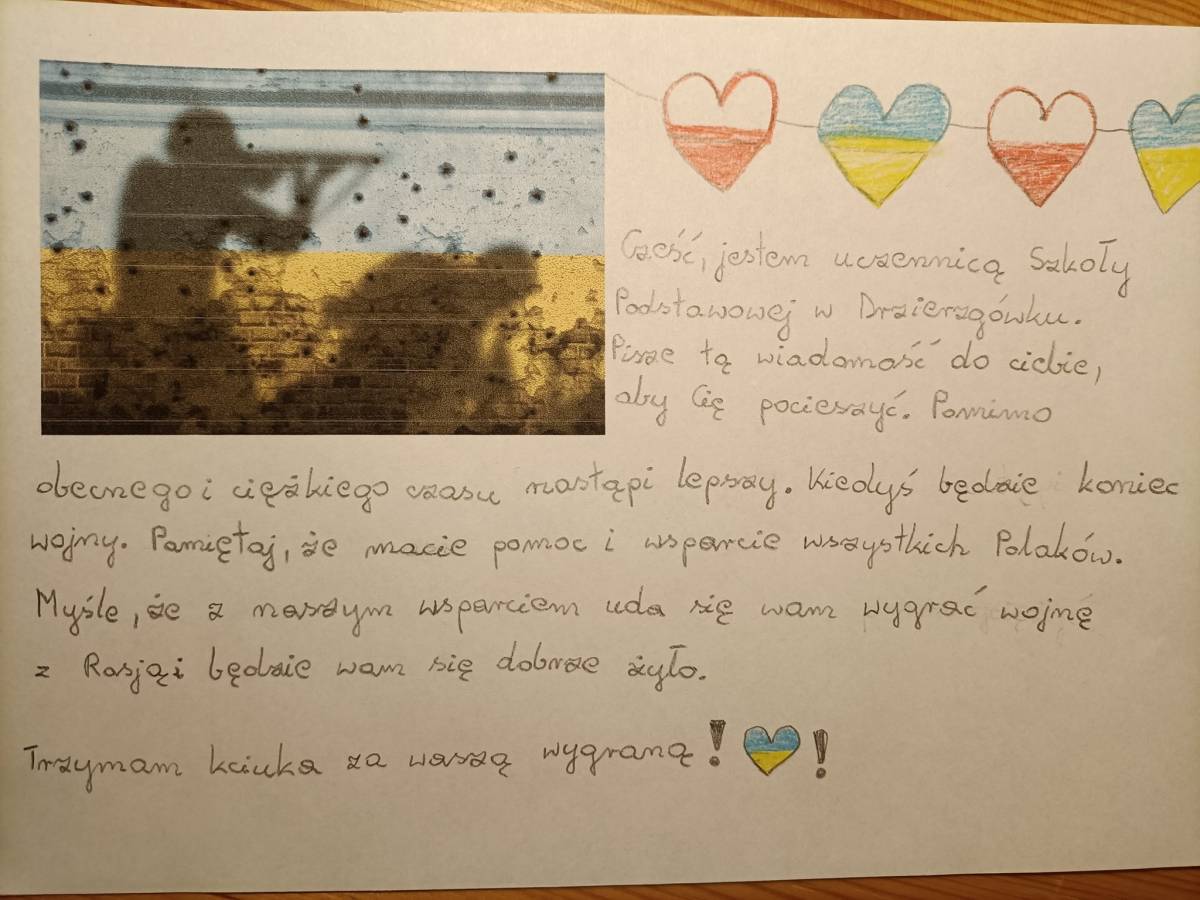 Cześć, jestem uczennicą Szkoły
Podstawowej w Drzierzgówku.
Pisze tą wiadomość do ciebie,
aby Cię pocieszyć. Pomimo
obecnego i ciężkiego czasu nastąpi lepszy. Kiedyś będzie koniec
wojny. Pamiętaj, że macie pomoc i wsparcie wszystkich Polaków.
Myśle, że z naszym wsparciem uda się wam wygrać wojnę
z Rosją i będzie wam się dobrze żyło.
Trzymam kciuka za waszą wygraną! !